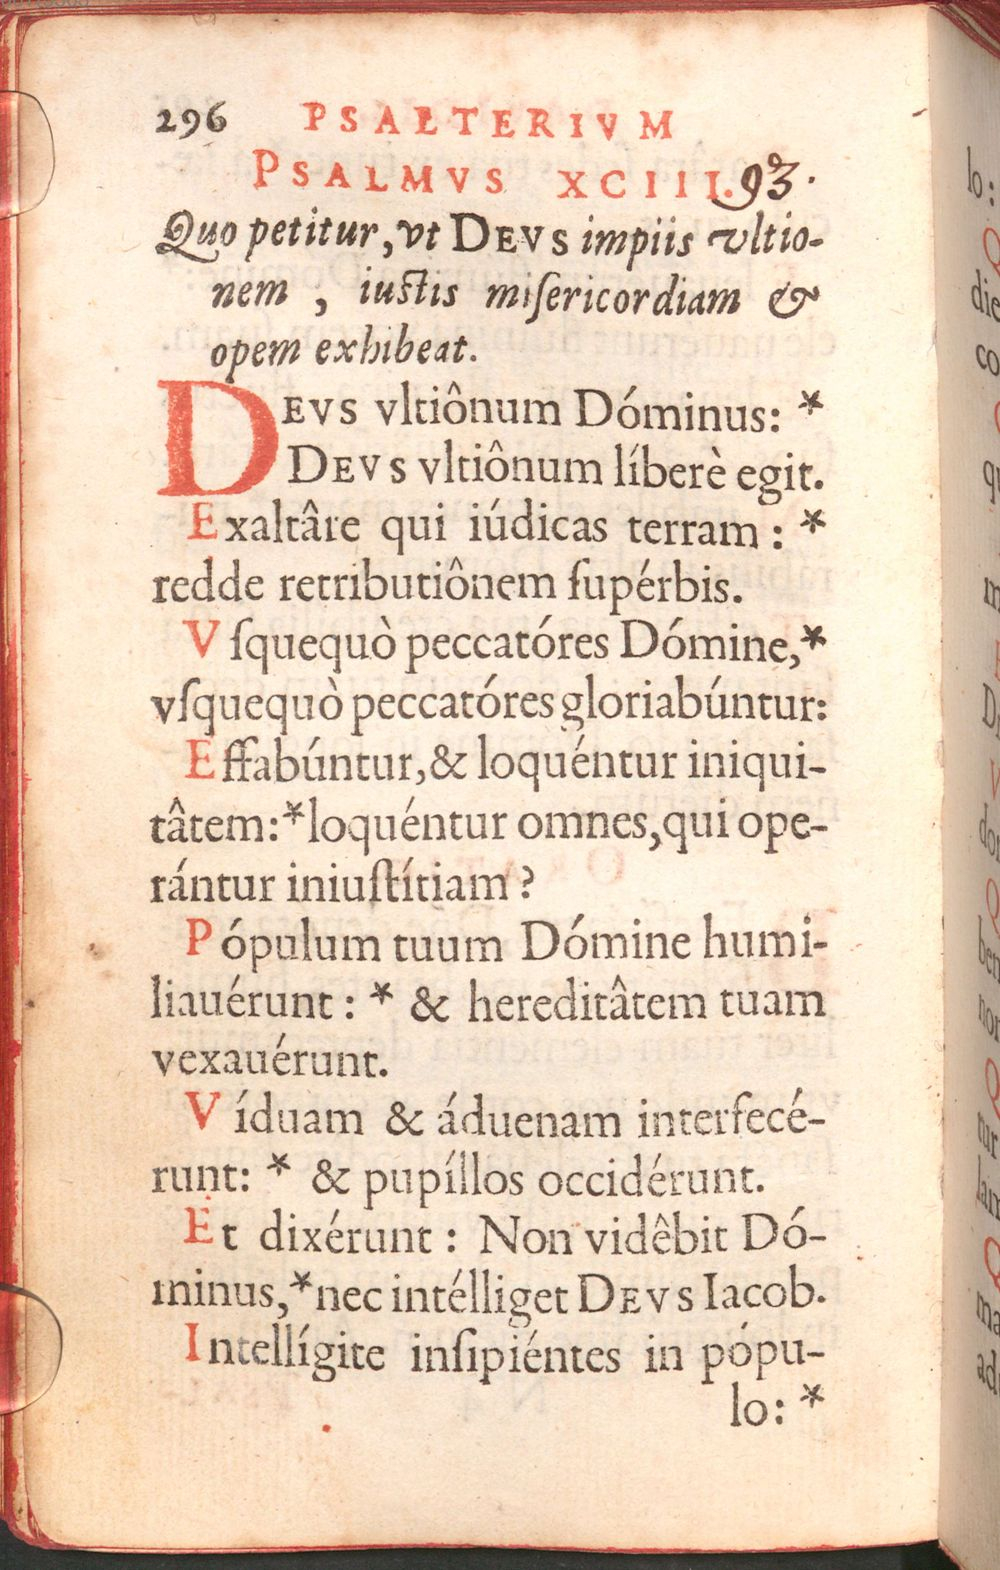 296 PSALTERIVM
PSALMVS XCIII. 93.
Quo petitur, vt DEVS impiis vltio-
nem , iustis miſericordiam &
opem exhibeat.
DEVS vltiônum Dóminus: *
DEVS vltiônum líberè egit.
Exaltâre qui iúdicas terram : *
redde retributiônem ſupérbis.
Vſquequò peccatóres Dómine,*
vſquequò peccatóres gloriabúntur:
Effabúntur, & loquéntur iniqui-
tâtem:* loquéntur omnes, qui ope-
rántur iniuſtítiam ?
Pópulum tuum Dómine humi-
liauérunt : * & hereditâtem tuam
vexauérunt.
Víduam & áduenam interfecé-
runt: * & pupíllos occidérunt.
Et dixérunt : Non vidêbit Dó-
minus,* nec intélliget DEVS Iacob.
Intellígite inſipiéntes in pópu-
lo: *